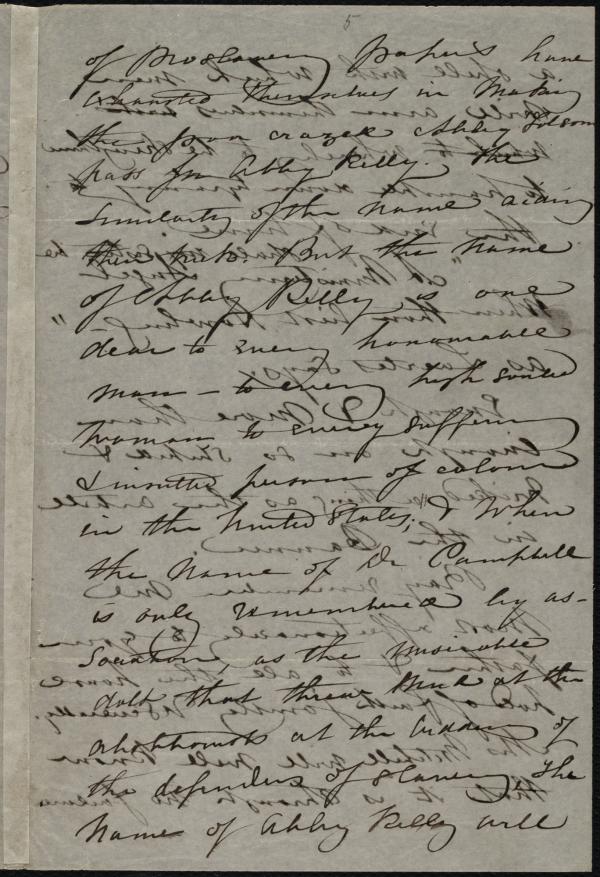 5
of proslavery papers have
exhausted themselves in making
the poor crazed Abby Folsom
pass for Abby Kelly. The
similarity of the name aiding
the But the name
of Abby Kelly is one
dear to every honourable
man – to every high souled
woman to every suffering
& insulted person of colour
in the United States; & when
the name of Dr Campbell
is only remembered by as-
sociation, as the miserable
dolt that threw mud at the
abolitionists at the bidding of
the defenders of slavery, the
name of Abby Kelly will